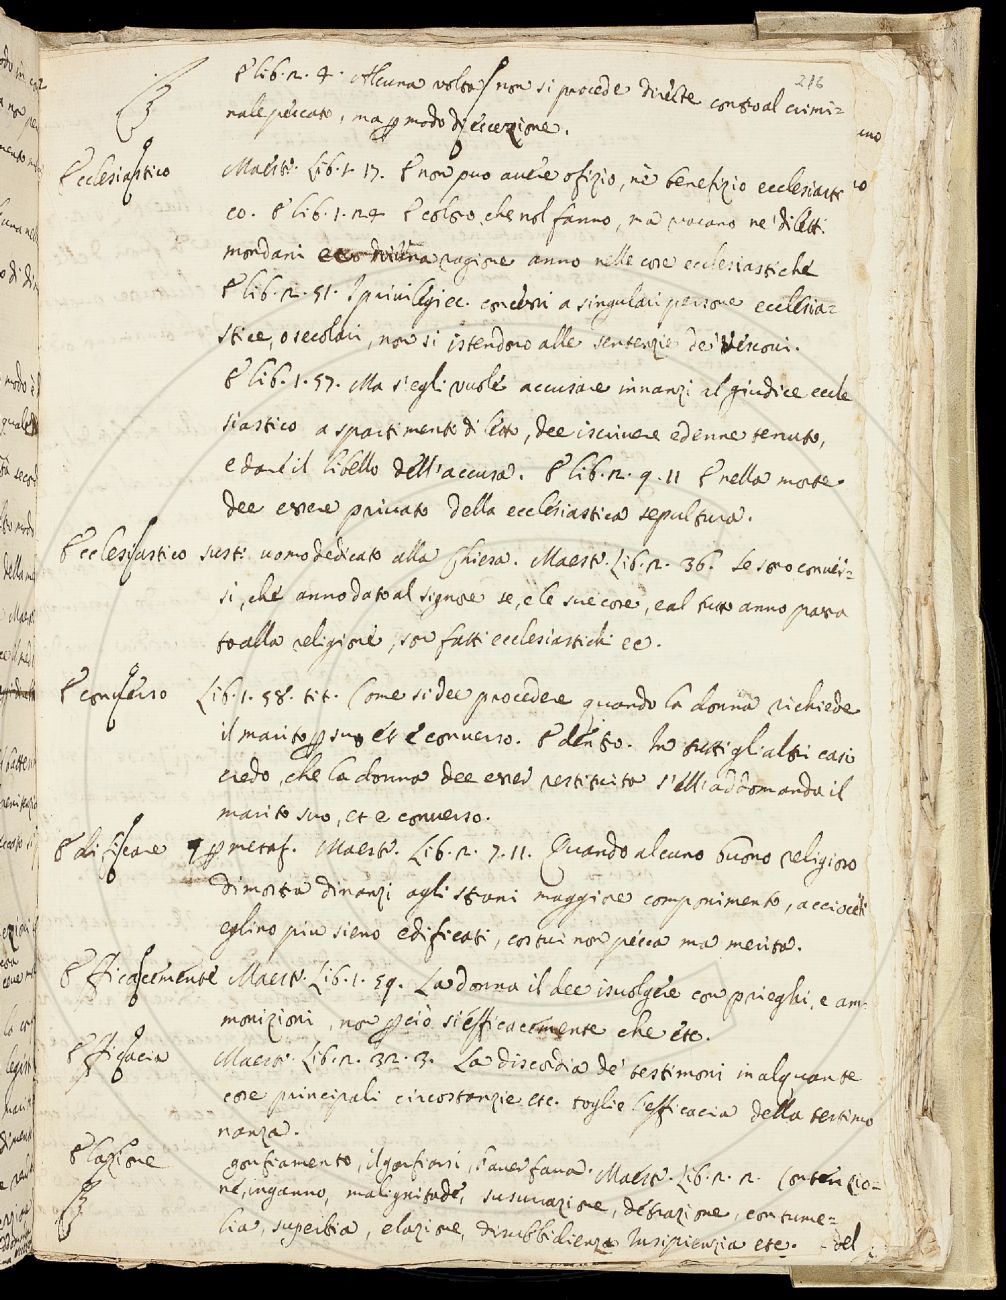 276
E lib. 2. 4. Alcuna volta non si procede direte contro al crimi=
nale peccato, ma p modo di eccezione.
Ecclesiastico Maestr. Lib. 1. 17. E non puo avere ofizio, ne benefizio ecclesiasti
co. E lib. 1. 24 E coloro, che nol fanno, ma vacano ne' dilett.
mondani ragione anno nelle cose ecclesiastiche
E lib. 2. 51. I privilegi ec. conceduti a singulari persone ecclesia=
stice, o secolari, non si istendono alle sentenzie de' Vescovi.
E lib. 1. 57. Ma s'egli vuole accusare innanzi al giudice eccle
siastico a spartimento di letto, dee iscrivere ed enne tenuto,
e dare il libello dell'accusa. E lib. 2. 9. 11 E nella morte
dee essere privato della ecclesiastica sepultura.
Ecclesiastico sust: uomo dedicato alla Chiesa. Maestr. Lib. 2. 36. Se sono conver=
si, che anno dato al signore se, e le sue cose, e al tutto anno passa
to alla religione, son fatti ecclesiastichi ec.
E converso Lib. 1. 58. tit. Come si dee procedere quando la donna richiede
il marito p suo et e converso. E dentro. In tutti gl'altri casi
credo, che la donna dee esser restituita s'ella addomanda il
marito suo, et e converso.
Edificare p metaf. Maestr. Lib. 2. 7. 11. Quando alcuno buono religioso
dimostra dinanzi agli strani maggiore componimento, acciocchè
eglino piu sieno edificati, costui non pecca ma merita.
Efficacemente Maestr. Lib. 1. 59. La donna il dee isvolgere con prieghi, e am=
monizioni, non p cio sì efficacemente che etc.
Efficacia Maestr. Lib. 2. 32. 3. La discordia de' testimoni in alquante
cose principali circostanzie etc. toglie l'efficacia della testimo
nanza.
Elazione gonfiamento, il gonfiarsi, Maestr. Lib. 2. 2. Contenzio=
ne, inganno, malignitade, susurrazione, detrazione, contume=
lia, superbia, elazione, disubbidienza Insipienzia etc. - del